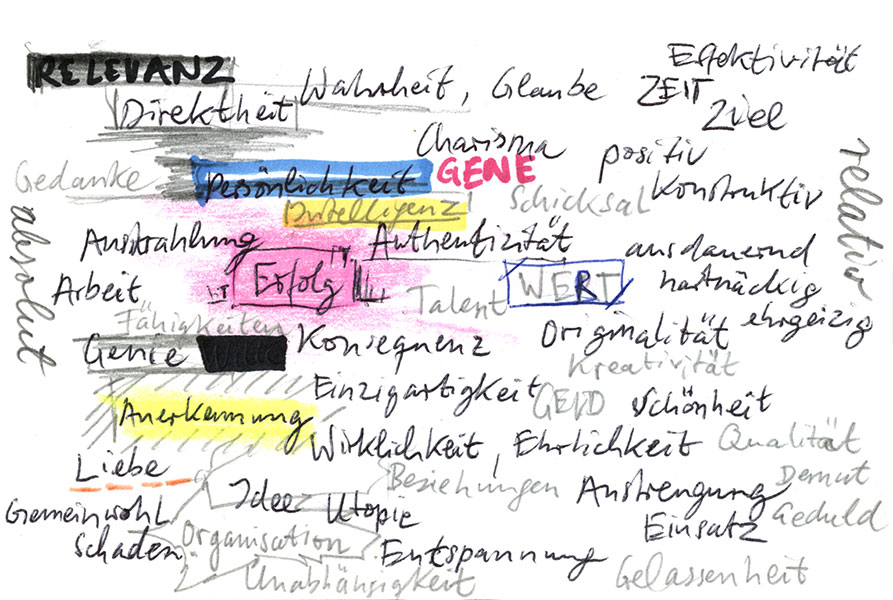 RELEVANZ
Effektivität
Wahrheit, Glaube ZEIT
Direktheit
Ziel
Charisma
positiv
relativ
Gedanke Persönlichkeit GENE
Intelligenz! Schicksal Konstruktiv
absolut
Ausstrahlung Authentizität ausdauernd
Arbeit Erfolg WERT hartnäckig
Talent
Fähigkeiten Originalität ehrgeizig
Genie Konsequenz
Kreativität
Einzigartigkeit GELD Schönheit
Anerkennung
Wirklichkeit, Ehrlichkeit Qualität
Liebe
Beziehungen Anstrengung Demut
Idee Utopie
Gemeinwohl Einsatz Geduld
Schaden Organisation
Entspannung
Unabhängigkeit Gelassenheit